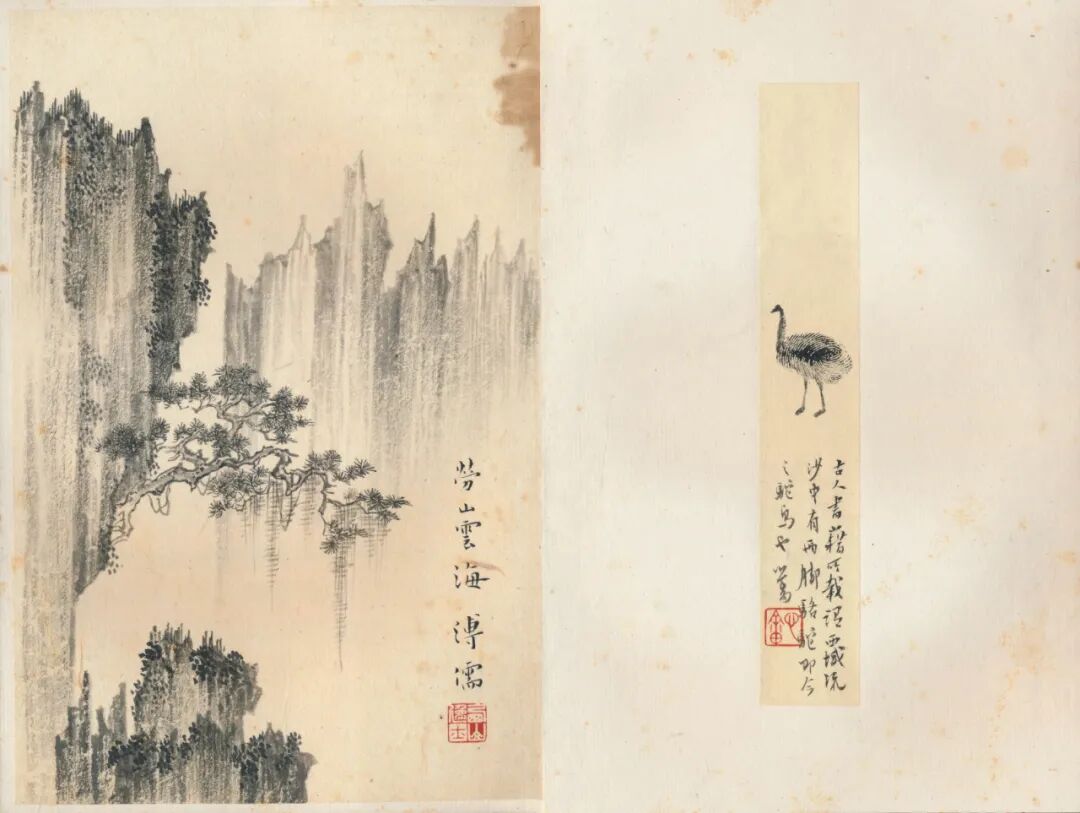 勞山雲海 溥儒
古人書籍所載謂西域流
沙中有兩脚駱駝即今
之駝鳥也 心畬